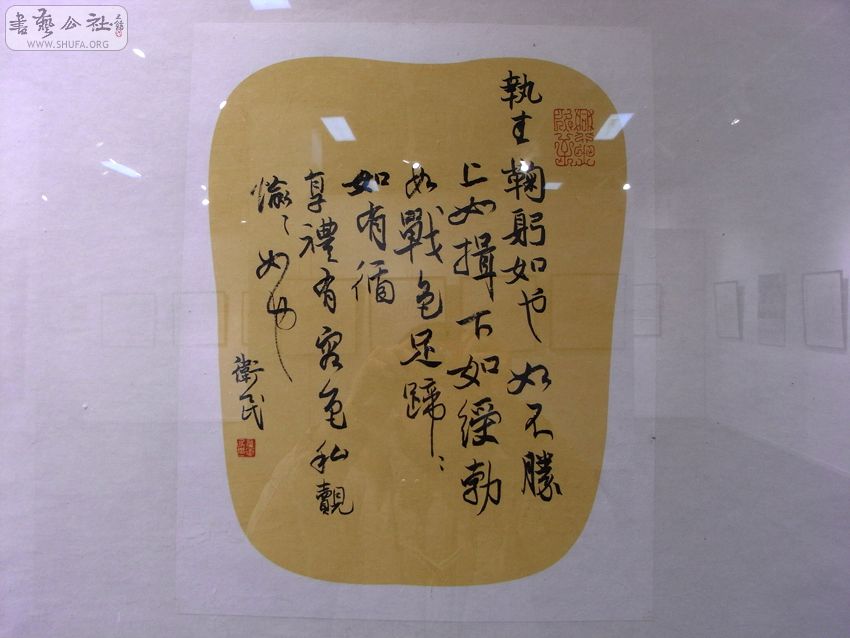 書藝公社
WWW.SHUFA.ORG
執圭鞠躬如也如不勝
上如揖下如授勃
如戰色足蹜〻
如有循
享禮有容色私覿
愉〻如也
衛民